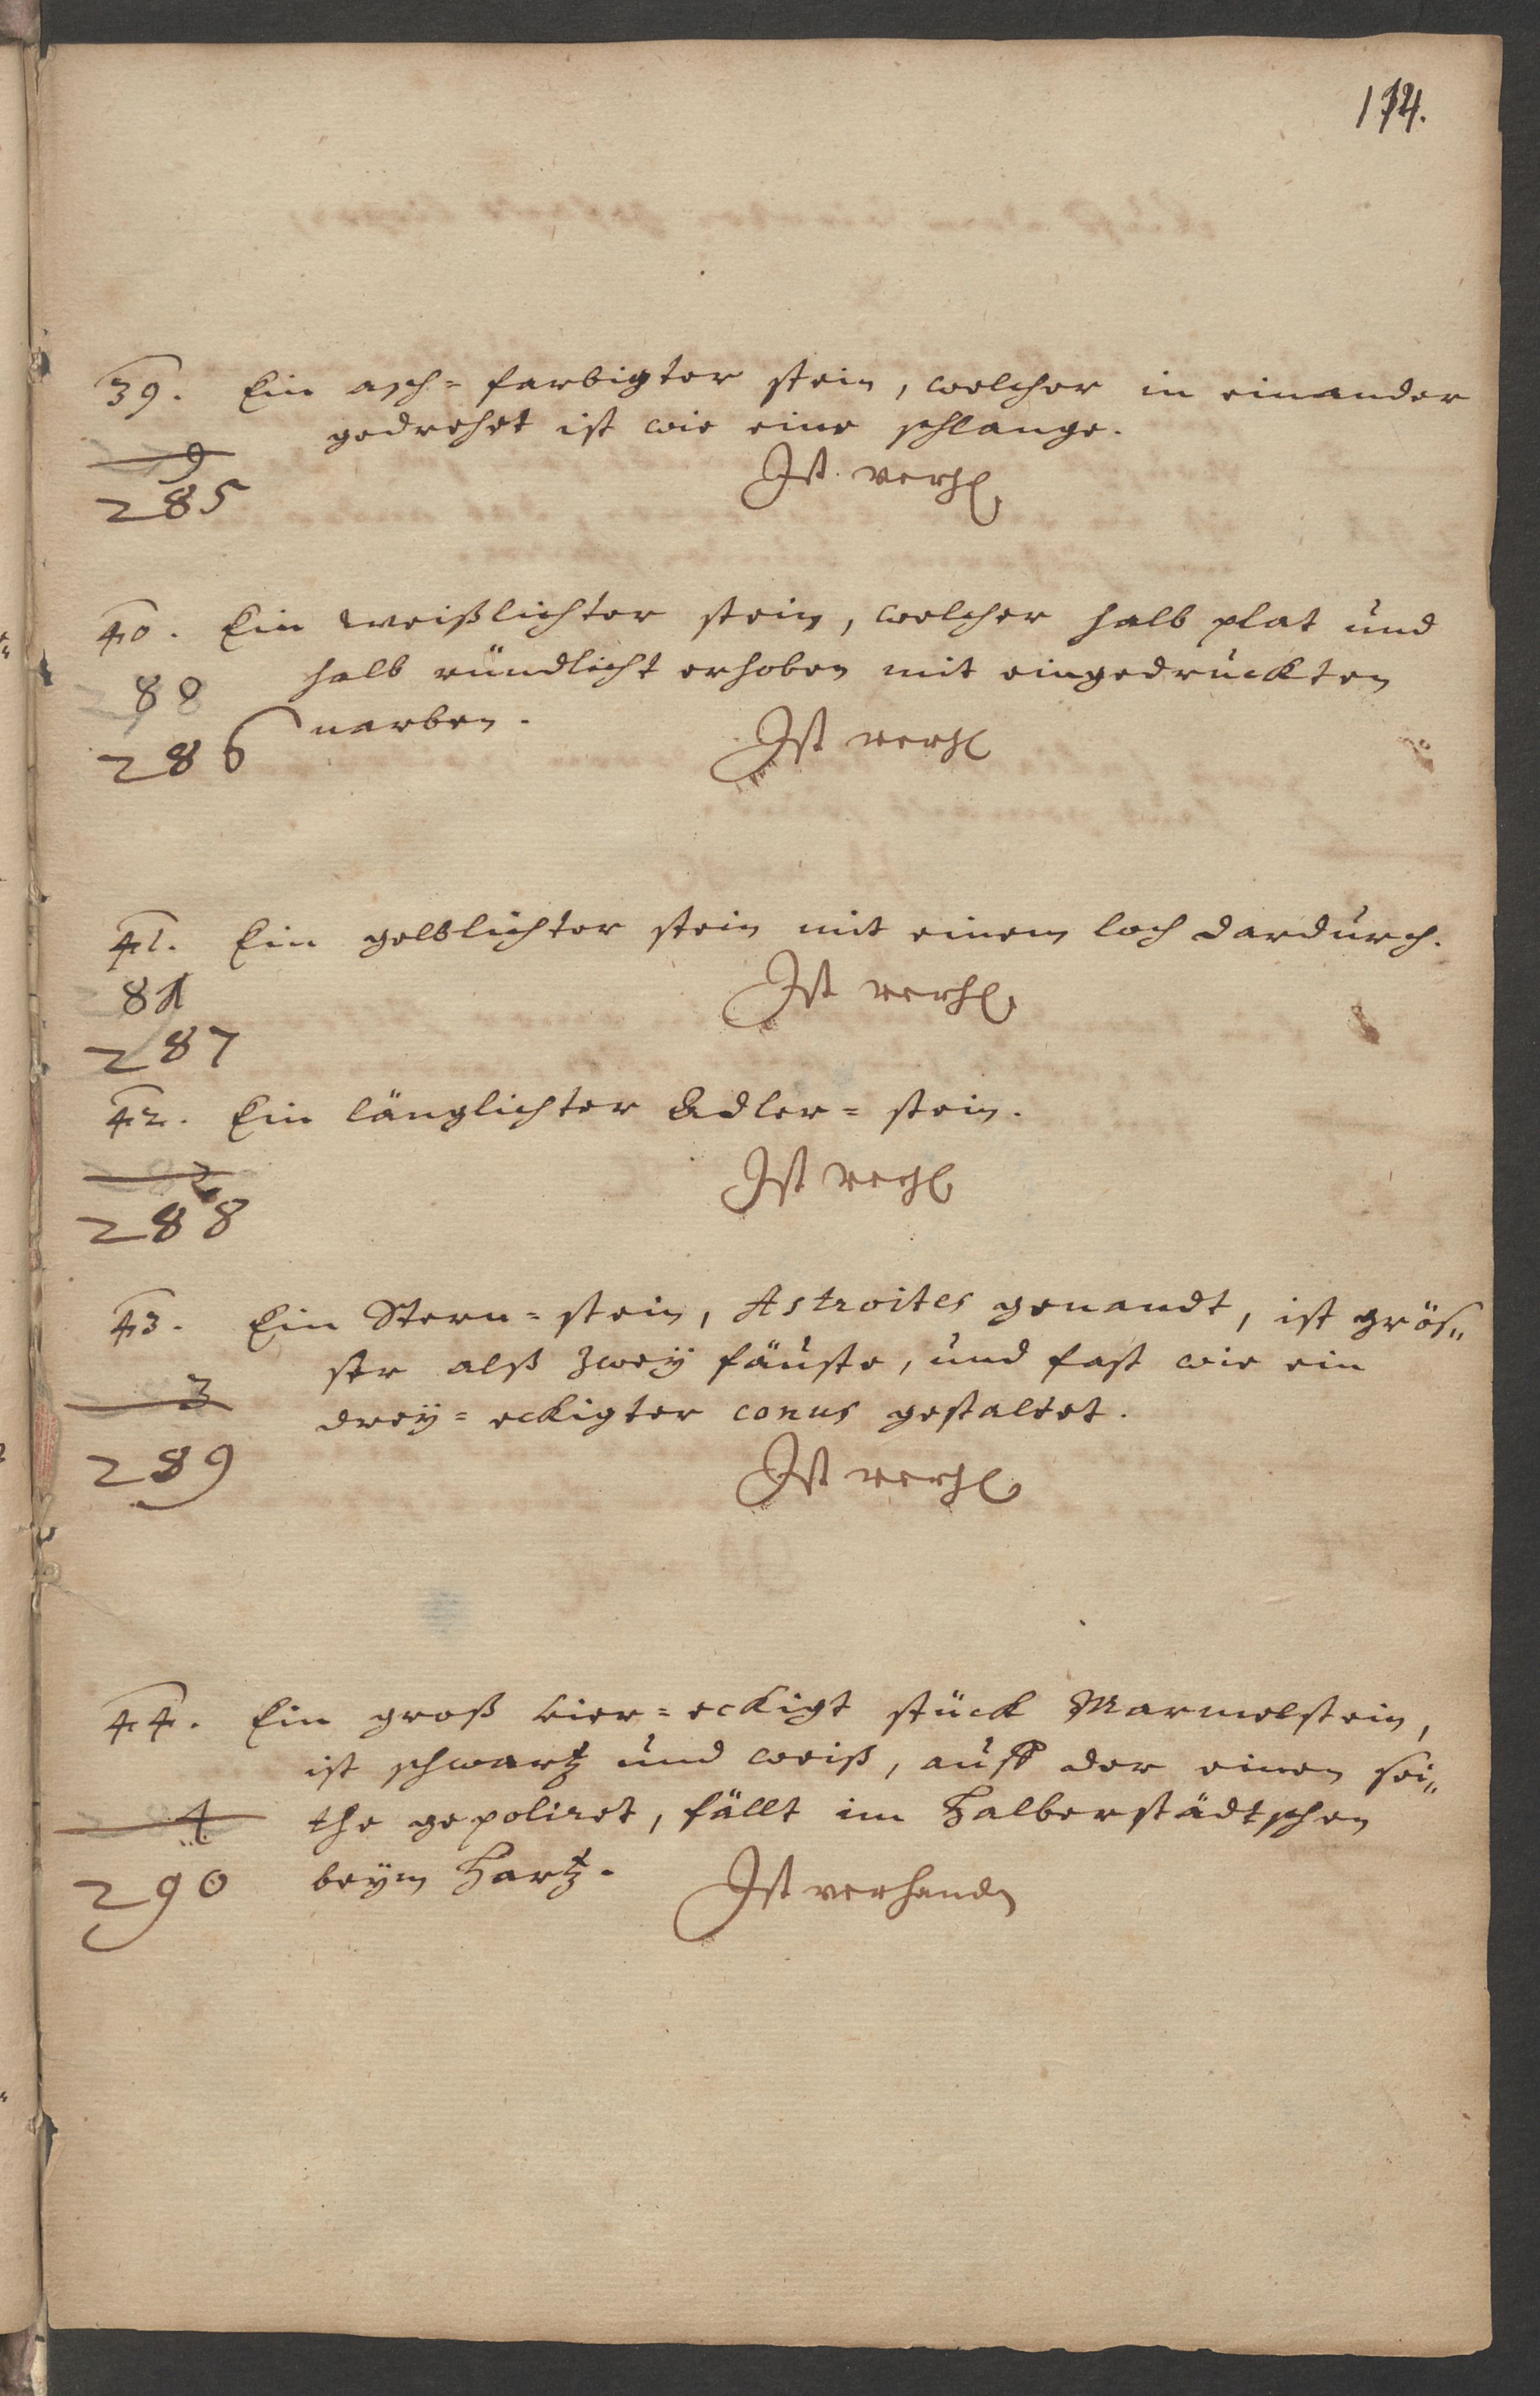 174.
39. Ein asch=farbigter stein, welcher in einander
gedrehet ist wie eine schlange.
9
285
Ist verh
40. Ein weißlichter stein, welcher halb plat und
halb ründlicht erhoben mit eingedruckten
narben.
88
286
Ist verh
41. Ein gelblichter stein mit einem loch dardurch.
81
287
Ist verh
42. Ein länglichter Adler=stein.
2
288
Ist verh
43. Ein Stern=stein, Astroites genandt, ist grös„
ser alß zweÿ fäuste, und fast wie ein
dreÿ=eckigter conus gestaltet.
3
289
Ist verh
44. Ein groß vier=eckigt stück Marmelstein,
ist schwartz und weiß, auff der einen sei„
the gepoliret, fällt im Halberstädtschen
beÿm Hartz.
4
290
Ist verhanden